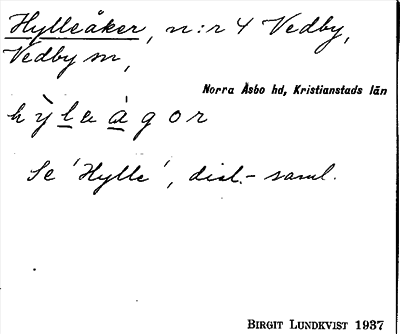 Hylleåker, n:r 4 Vedby,
Vedby sn,
Norra Åsbo hd, Kristianstads län
hỳlaàgor
Se 'Hylle', dial.-saml.
BIRGIT LUNDKVIST 1937